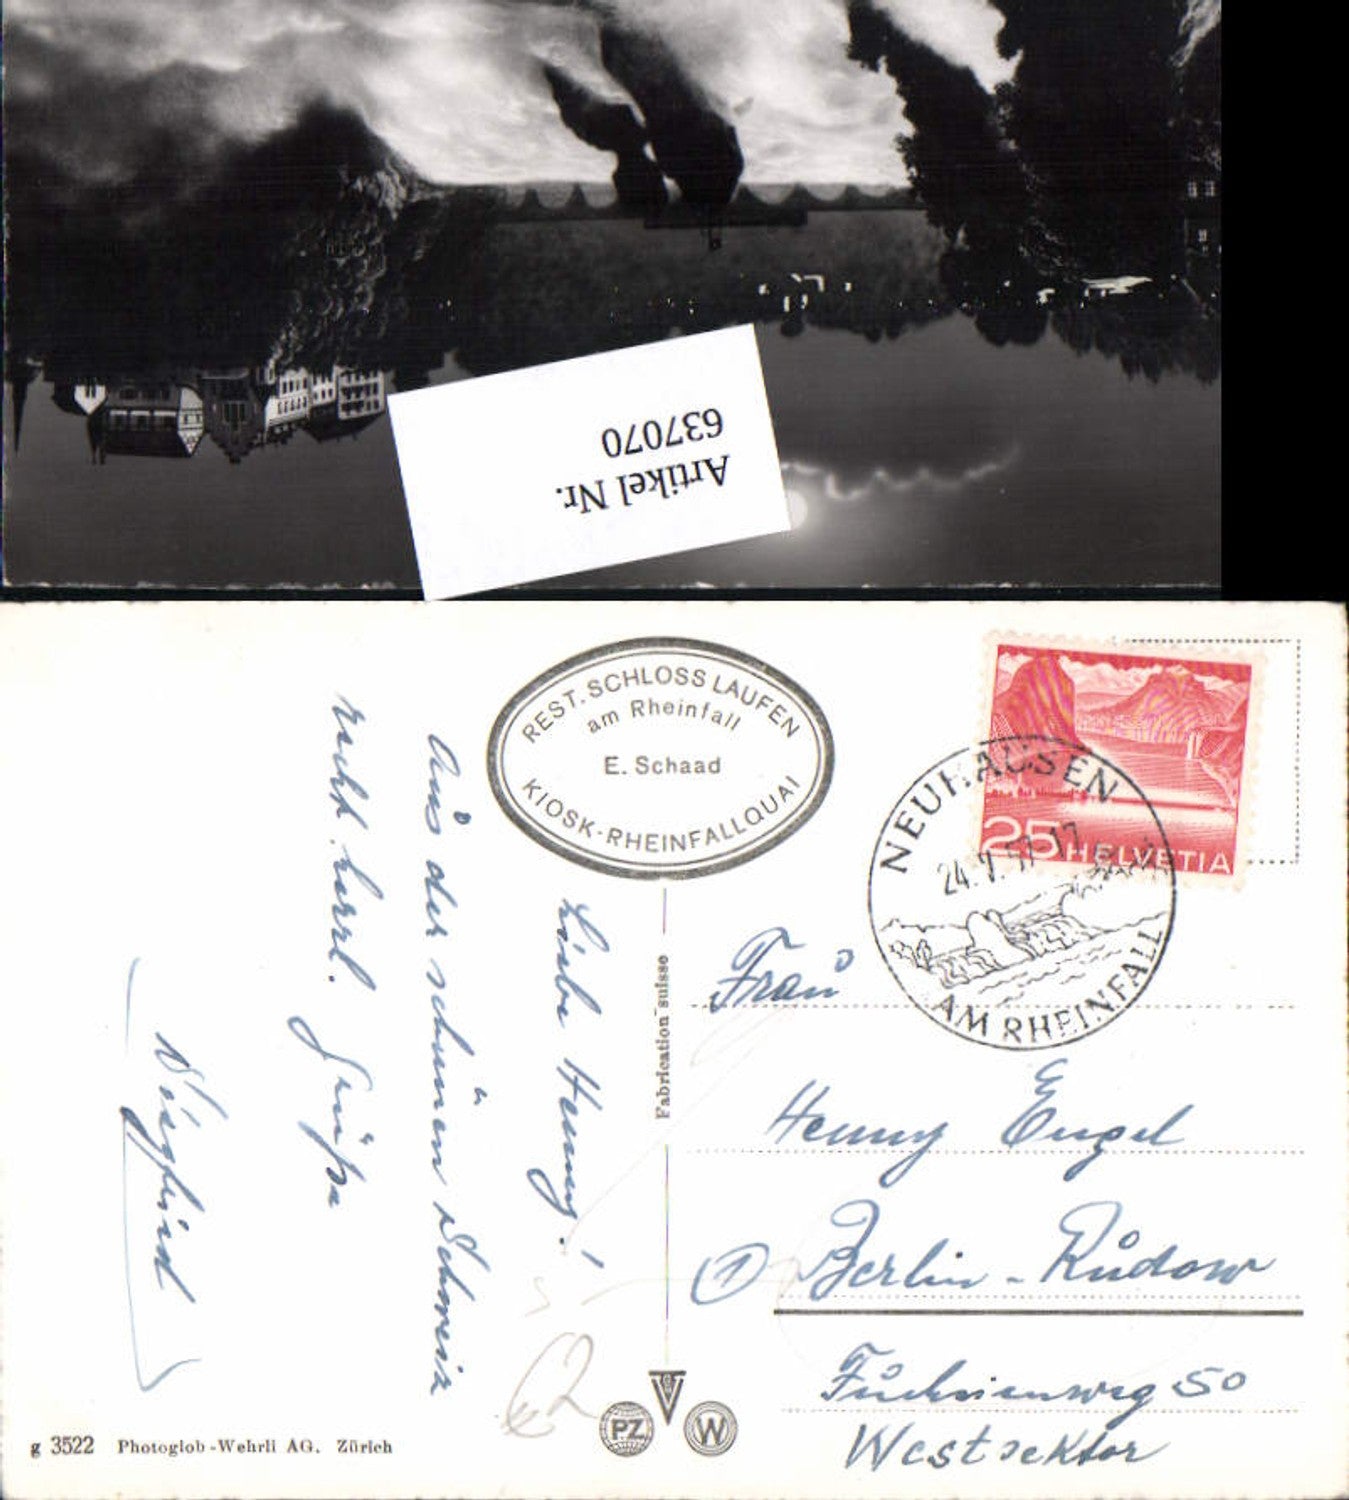 Artikel Nr.
637070
REST. SCHLOSS LAUFEN
am Rheinfall
E. Schaad
KIOSK-RHEINFALLQUAI
25 HELVETIA
NEUHAUSEN
24.V.57-17
AM RHEINFALL
Liebe Henny!
Aus der schönen Schweiz
recht herzl. Grüße
Fabrication suisse
Frau
Henny Engel
① Berlin-Rudow
Fuchsienweg 50
Westsektor
PZ
W
g 3522 Photoglob-Wehrli AG. Zürich